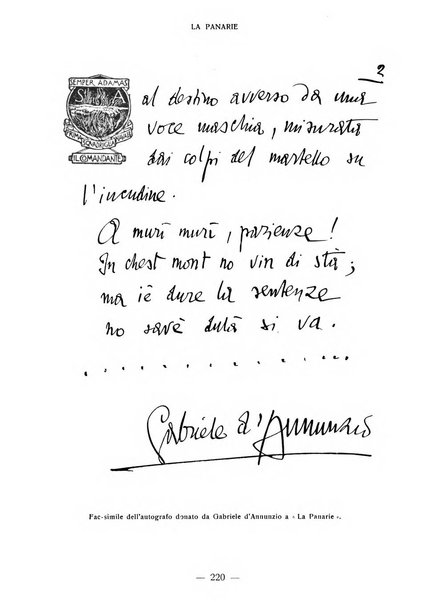 LA PANARIE
2
SEMPER ADAMAS
S A
PRIMA SQUADRIGLIA NAVALE
IL COMANDANTE
al destino avverso da una
voce maschia, misurata
dai colpi del martello su
l'incudine.
A murì murì, pazienze!
In chest mont no vin di stà;
ma iè dure la sentenze
no savè dulà si va.
. . . . . . . . . . . . . . .
Gabriele d'Annunzio
Fac-simile dell'autografo donato da Gabriele d'Annunzio a « La Panarie ».
— 220 —